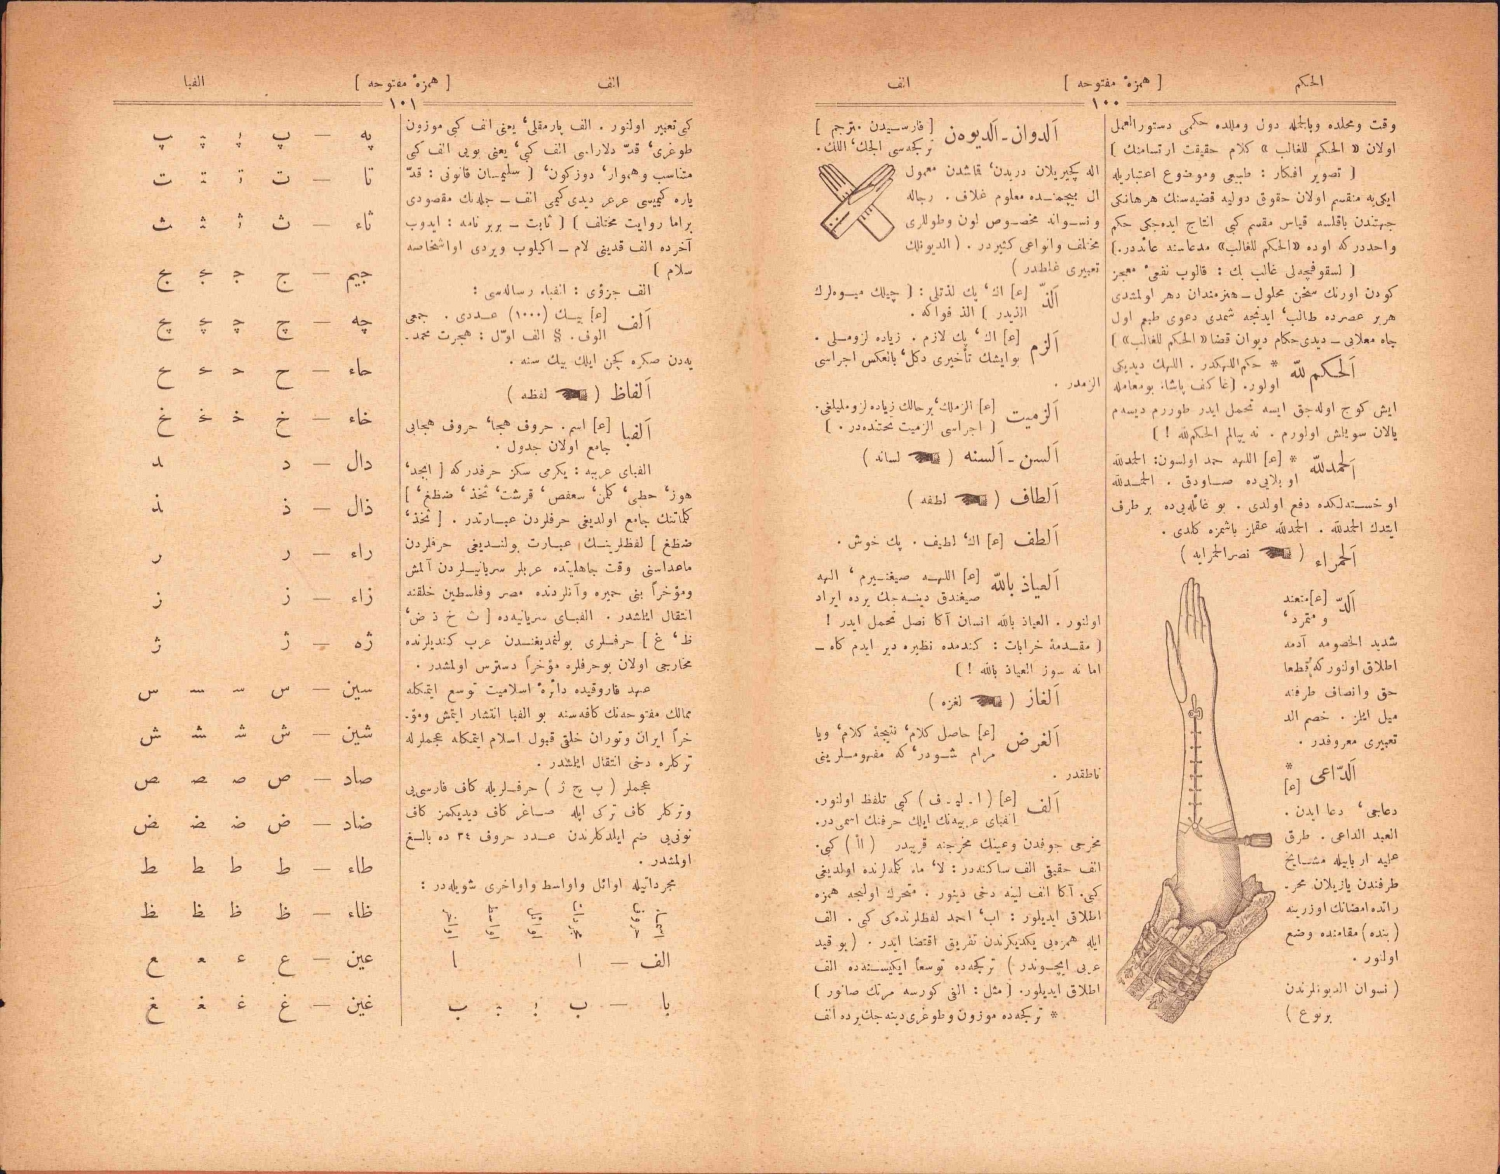 الحكم
[ همزهٔ مفتوحه ]
الف
١٠٠
وقت ومحلده وبالجمله دول ومللده حكمى دستورالعمل
اولان « الحكم للغالب » كلام حقيقت ارتسامنك ]
[ تصوير افكار : طبيعى وموضوع اعتباريله
ايكى‌يه منقسم اولان حقوق دوليه قضيه‌سنك هرهانكى
جهتندن باقلسه قياس مقسم كبى انتاج ايده‌جكى حكم
واحددركه اوده «الحكم للغالب» مدعاسنه عائددر.]
غالب بك : قالوب نفعىٔ معجز
كودن اورنك سخن محلول ــ هنرمندان دهر اولمشدى
هربر عصرده طالب‘ ايدنجه شمدى دعوى طبعم اول
جاه معلايى ــ ديدى حكام ديوان قضا « الحكم للغالب» ]
اَلحكم لله
* حكم اللهكدر . اللهك ديديكى
اولور. [عاكف پاشا: بومعامله
ايش كوج اوله‌جق ايسه تحمل ايدر طوررم ديسه‌م
يالان سويلش اولورم . نه ياپالم الحكم لله ! ]
اَلحمدلله
* [ع] اللهه حمد اولسون: الحمدلله
او بلايى‌ده صاودق . الحمدلله
او خسته‌لكده دفع اولدى . بو غائله‌يى‌ده بر طرف
ايتدك الحمدلله . الحمدلله عقلز باشمزه كلدى .
اَلحمراء ( نصرالحمرايه )
اَلدّ
[ع] متعند
ومتمرد‘
شديد الخصومه آدمه
اطلاق اولنور كه قطعا
حق وانصاف طرفنه
ميل ايتمز . خصم الد
تعبيرى معروفدر .
اَلدّاعى
*
[ع]
دعاجى‘ دعا ايدن .
العبد الداعى . طرق
عليه اربابيله مشايخ
طرفندن يازيلان محر-
راتده امضانك اوزرينه
(بنده) مقامنده وضع
اولنور .
( نسوان الديونلرندن
برنوع )
اَلدوان ـ اَلديوه‌ن
[ فارسيدن مترجم ]
تركجه‌سى الجك‘ اللك.
اله كچيريلان دريدن‘ قاشدن معمول
ال بيچمنده معلوم غلاف . رجاله
ونسوانه مخصوص لون وطوللرى
مختلف وانواعى كثيردر . ( الديونلك
تعبيرى غلطدر )
اَلذّ
[ع] اك‘ پك لذتلى : [ چيلك ميوه‌لرك
الذيدر ] الذ فواكه .
اَلزم
[ع] اك‘ پك لازم . زياده لزومسلى .
بوايشك تأخيرى دكل‘ بالعكس اجراسى
الزمدر .
اَلزميت
[ع] الزملك‘ برحالك زياده لزومليلغى.
[ اجراسى الزميت تحتنده‌در . ]
اَلسن ـ اَلسنه ( لسانه )
اَلطاف ( لطفه )
اَلطف
[ع] اك‘ لطيف . پك خوش .
اَلعياذ بالله
[ع] اللهه صيغنيرم‘ الهه
صيغندق دينه‌جك يرده ايراد
اولنور . العياذ بالله انسان آكا نصل تحمل ايدر !
[ مقدمهٔ خرابات : كندمده نظيره دير ايدم كاه ــ
اما نه سوز العياذ بالله ! ]
اَلغاز ( لغزه )
اَلغرض
[ع] حاصل كلام‘ نتيجهٔ كلام‘ ويا
مرام شودر‘ كه مفهوملرينى
ناطقدر .
اَلف
[ع] ( ا ـ ليـ ـف ) كبى تلفظ اولنور.
الفباى عربيه‌نك ايلك حرفنك اسمى‌در.
مخرجى جوفدن وعينك مخرجنه قريبدر ( اأ ) كبى.
الف حقيقى الف ساكنه‌در : لا‘ ماء كلمه‌لرنده اولديغى
كبى. آكا الف لينه دخى دينور . متحرك اولنجه همزه
اطلاق ايديلور : اب‘ احمد لفظلرنده‌كى كبى . الف
ايله همزه‌يى يكديكرندن تفريق اقتضا ايدر . ( بو قيد
عربى ايچوندر ) تركجه‌ده توسعاً ايكيسنه‌ده الف
اطلاق ايديلور. [ مثل : الفى كورسه مرتك صانور ]
* تركجه‌ده موزون وطوغرى دينه‌جك يرده الف
الف
[ همزهٔ مفتوحه ]
الفبا
١٠١
كبى تعبير اولنور . الف پارمقلى‘ يعنى الف كبى موزون
طوغرى‘ قدّ دلاراسى الف كبى‘ يعنى بويى الف كبى
متناسب وهموار‘ دوزكون‘ [ سليمان قانونى : قدّ
ياره كيميسى عرعر ديدى كيمى الف ــ جمله‌نك مقصودى
براما روايت مختلف ] [ ثابت ــ بربر نامه : ايدوب
آخرده الف قدينى لام ــ اكيلوب ويردى او اشخاصه
سلام ]
الف جزؤى : الفباء رساله‌سى :
اَلف
[ع] بيك (١٠٠٠) عددى . جمعى
الوف. § الف اوّل : هجرت محمد-
يه‌دن صكره كچن ايلك بيك سنه .
اَلفاظ ( لفظه )
اَلفبا
[ع] اسم. حروف هجا‘ حروف هجايى
جامع اولان جدول .
الفباى عربيه : يكرمى سكز حرفدركه [ ابجد‘
هوز‘ حطى‘ كلمن‘ سعفص‘ قرشت‘ ثخذ‘ ضظغ‘ ]
كلماتنك جامع اولديغى حرفلردن عبارتدر . [ ثخذ‘
ضظغ ] لفظلرينك عبارت بولنديغى حرفلردن
ماهداسنى وقت جاهليتده عربلر سريانيلردن آلمش
ومؤخراً بنى حميره وآنلردنده مصر وفلسطين خلقنه
انتقال ايتمشدر . الفباى سريانيه‌ده [ ث خ ذ ض‘
ظ‘ غ ] حرفلرى بولنمديغندن عرب كنديلرنده
مخارجى اولان بوحرفلره مؤخراً دسترس اولمشدر .
عهد فاروقيده دائرهٔ اسلاميت توسع ايتمكله
ممالك مفتوحه‌نك كافه‌سنه بو الفبا انتشار ايتمش ومؤ-
خراً ايران وتوران خلقى قبول اسلام ايتمكله عجملرله
تركلره دخى انتقال ايتمشدر .
عجملر ( پ چ ژ ) حرفلريله كاف فارسى‌يى
وتركلر كاف تركى ايله صاغر كاف ديديكمز كاف
نونى‌يى ضم ايلدكلرندن عدد حروف ٣٤ ده بالغ
اولمشدر .
مجرداتيله اوائل واواسط واواخرى شويله‌در :
اسماء حروف
مجردات
اوائل
اواسط
اواخر
الف — ا ا
با — ب بـ ـبـ ـب
پە — پ پـ ـپـ ـپ
تا — ت تـ ـتـ ـت
ثاء — ث ثـ ـثـ ـث
جيم — ج جـ ـجـ ـج
چه — چ چـ ـچـ ـچ
حاء — ح حـ ـحـ ـح
خاء — خ خـ ـخـ ـخ
دال — د ـد
ذال — ذ ـذ
راء — ر ر
زاء — ز ز
ژه — ژ ژ
سين — س سـ ـسـ ـس
شين — ش شـ ـشـ ـش
صاد — ص صـ ـصـ ـص
ضاد — ض ضـ ـضـ ـض
طاء — ط طـ ـطـ ـط
ظاء — ظ ظـ ـظـ ـظ
عين — ع عـ ـعـ ـع
غين — غ غـ ـغـ ـغ